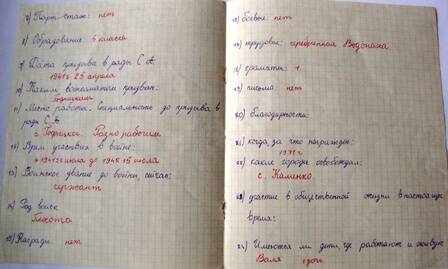 7) Парт. стаж: нет
8) Образование: 4 класса
9) Дата призыва в ряды С.А.
1941г 25 апреля
10) Каким военкоматом призван:
Годицким
11) Место работы. Специальность до призыва в
ряды С.А.
с. Годицкое. Разно рабочим
12) Время участия в войне:
с 1941г июля до 1945 15 июля
13) Воинское звание до войны, сейчас:
сержант
14) Род войск
Пехота
15) Награды: нет
16) боевые: нет
17) трудовые: серебринная Медаль
18) грамоты: 1
19) письма: нет
20) благодарности:
21) когда, за что награжден:
1971г
22) какие города освобождал:
с. Каменко.
23) участие в общественной жизни в настоящее
время:
24) Имеются ли дети, где работают и живут
Валя 1 дочь